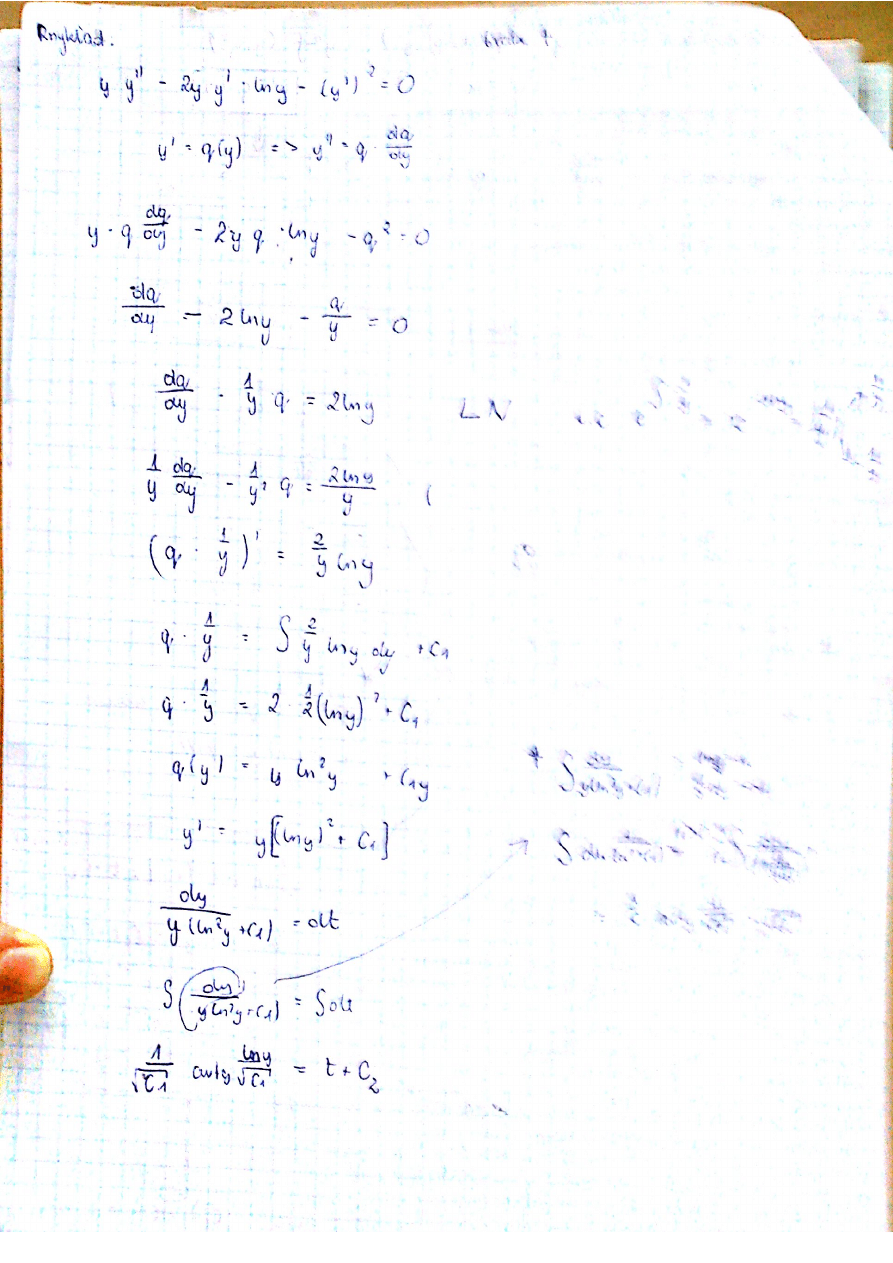 Przykład.
y y'' - 2y y' · ln y - (y')² = 0
y' = q(y) => y'' = q · dq/dy
y · q dq/dy - 2y q · ln y - q² = 0
dq/dy - 2 ln y - q/y = 0
dq/dy - 1/y · q = 2 ln y LN
1/y dq/dy - 1/y² q = 2 ln y / y (
(q · 1/y)' = 2/y ln y
q · 1/y = ∫ 2/y ln y dy + C1
q · 1/y = 2 · 1/2 (ln y)² + C1
q(y) = y ln² y + C1y
y' = y[(ln y)² + C1]
dy / y(ln²y + C1) = dt
∫ dy / y(ln²y + C1) = ∫ dt
1/√C1 arctg ln y/√C1 = t + C2